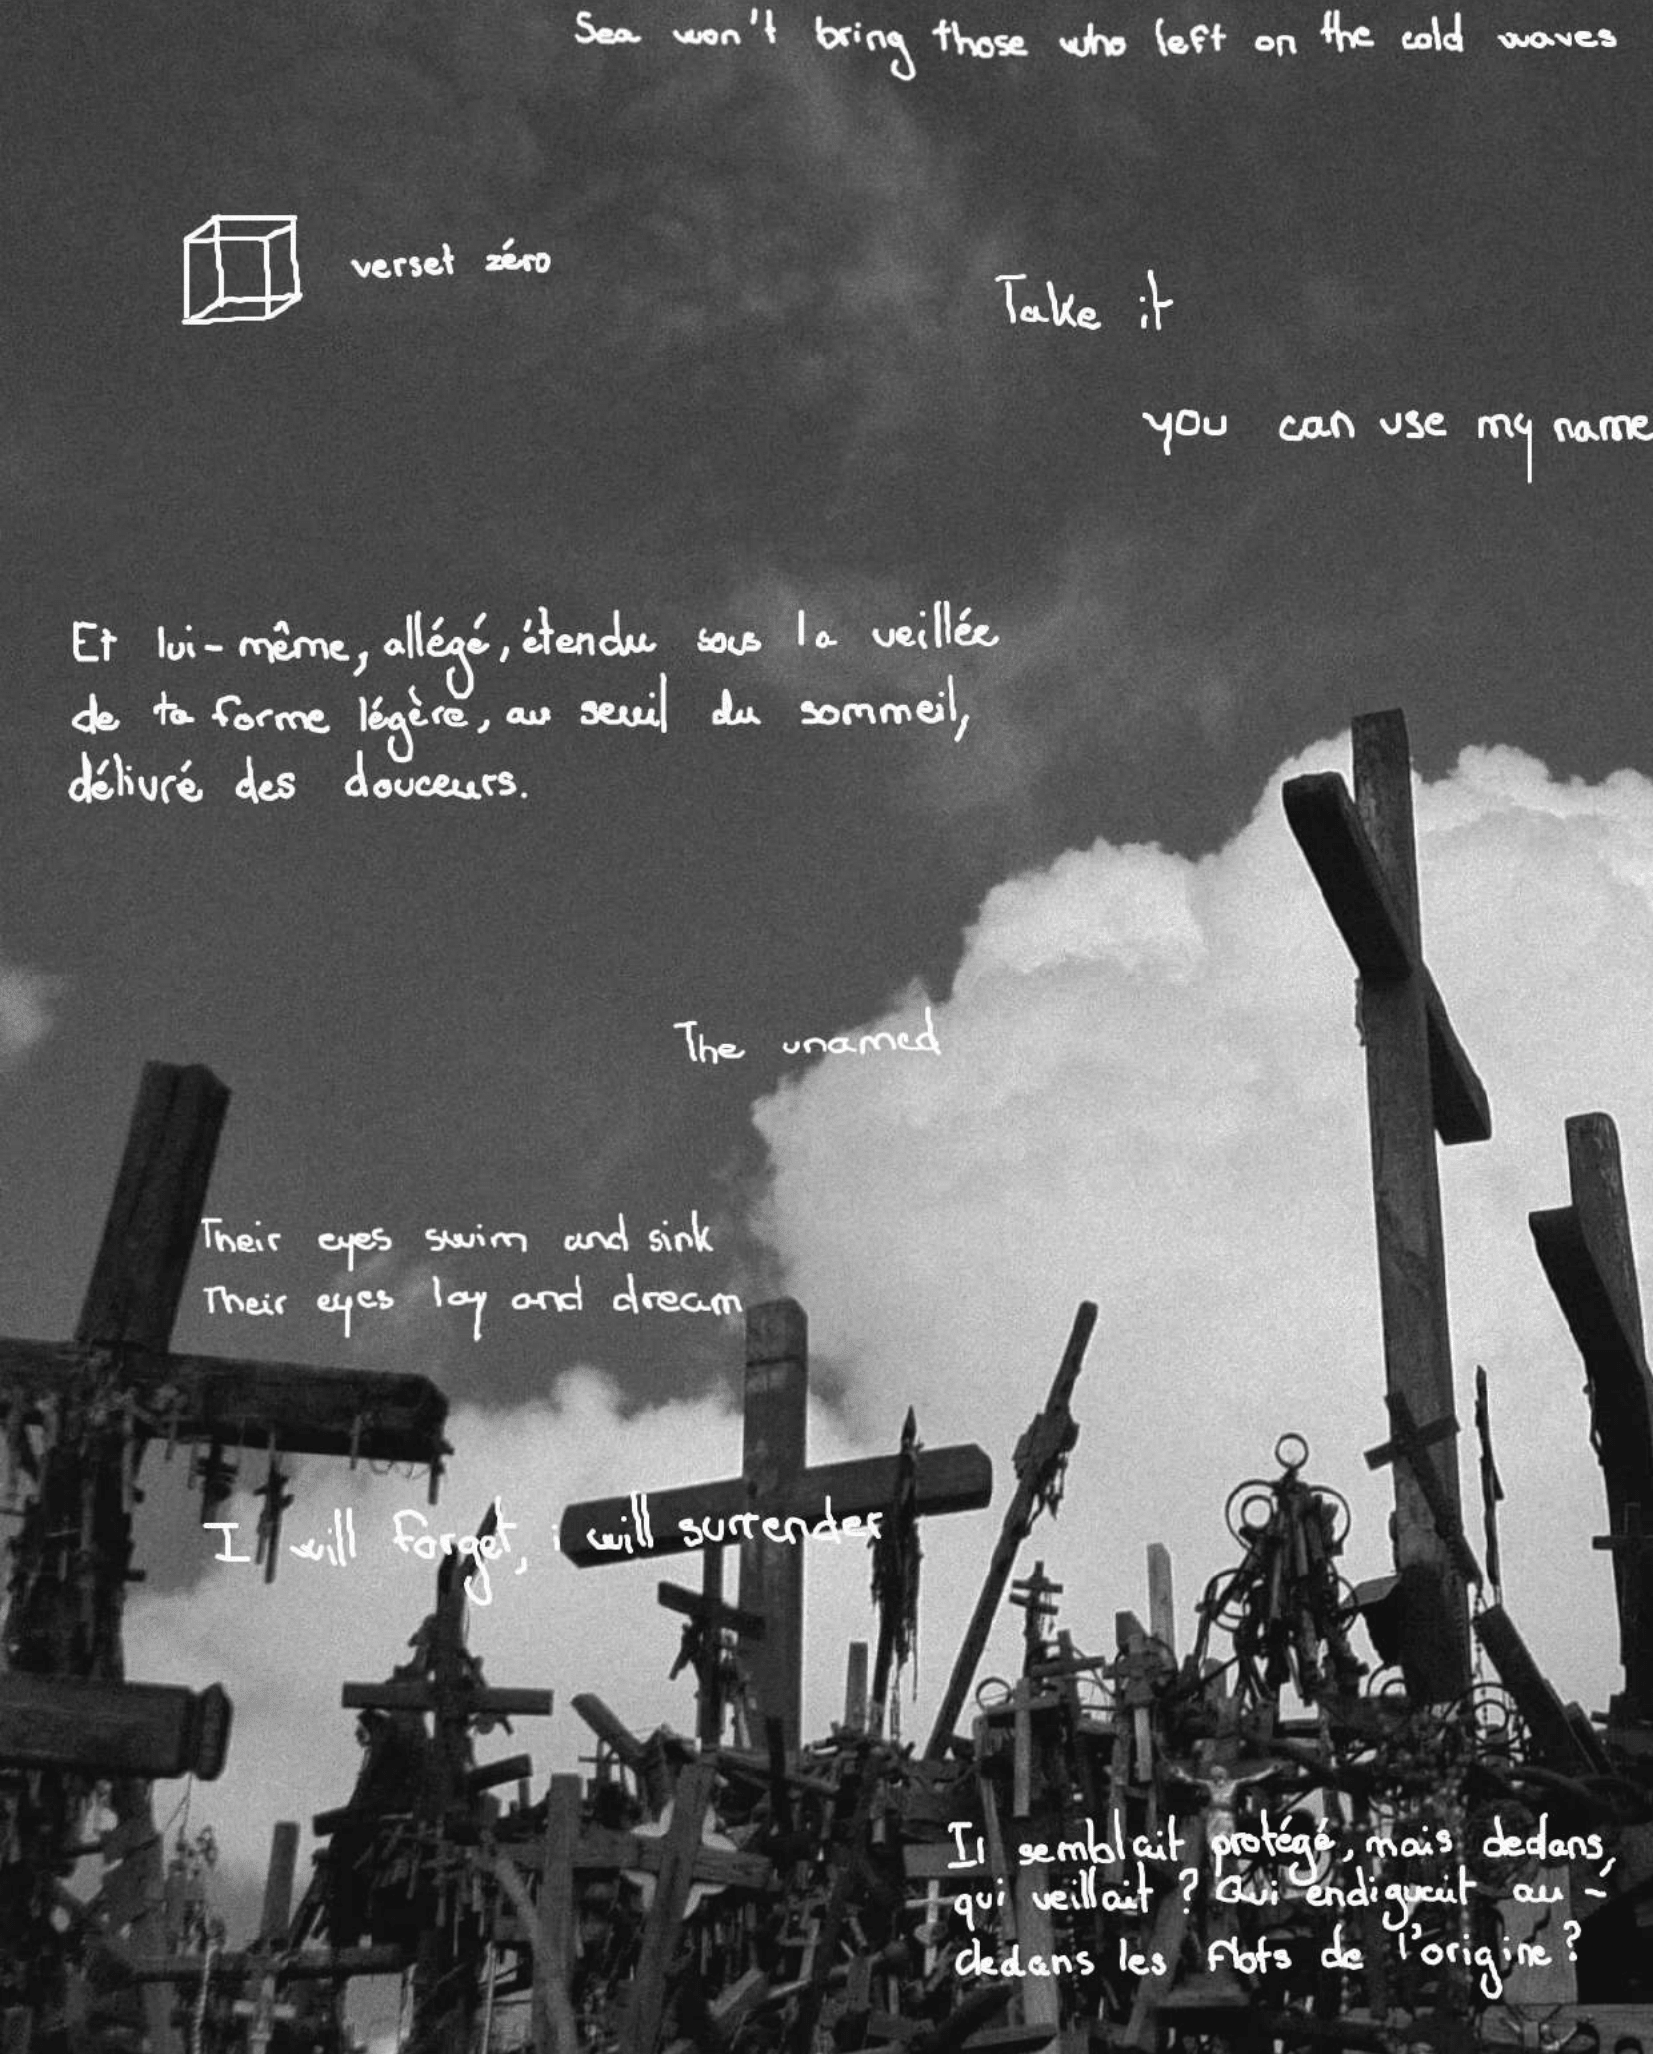 Sea won't bring those who left on the cold waves
verset zéro
Take it
you can use my name
Et lui-même, allégé, étendu sous la veillée
de ta forme légère, au seuil du sommeil,
délivré des douceurs.
The unamed
Their eyes swim and sink
Their eyes lay and dream
I will forget, i will surrender
Il semblait protégé, mais dedans,
qui veillait ? Qui endiguait au-
dedans les flots de l'origine ?